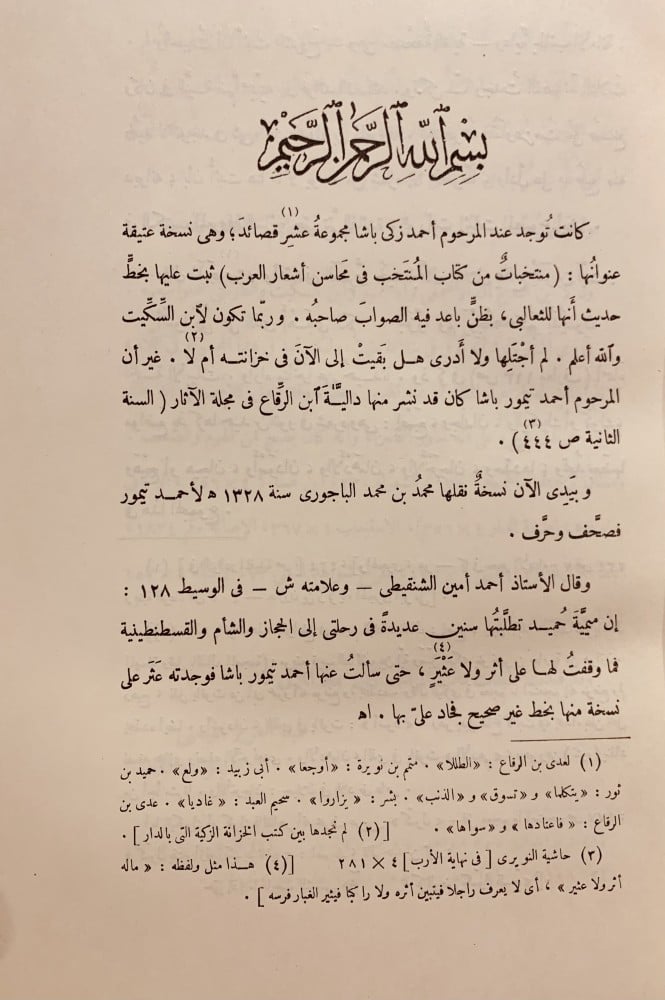 بِسْمِ ٱللهِ ٱلرَّحْمٰنِ ٱلرَّحِيمِ
كانت تُوجد عند المرحوم أحمد زكى باشا مجموعةُ عشْرِ قصائدَ(١)؛ وهى نسخة عتيقة
عنوانُها : (منتخباتٌ من كتاب المُنتَخب فى مَحاسن أشعار العرب) ثبت عليها بخطٍّ
حديث أنَّها للثعالبى، بظنٍّ باعد فيه الصوابَ صاحبُه . وربّما تكون لآبن السِّكِّيت
وٱلله أعلم . لم أجْتَلِها ولا أدرى هل بَقيتْ إلى الآنَ فى خزانته أم لا(٢) . غير أن
المرحوم أحمد تيمور باشا كان قد نشر منها داليَّةَ ٱبن الرِّقاع فى مجلة الآثار ( السنة
الثانية ص ٤٤٤(٣) ) .
و بَيَدِى الآن نسخةٌ نقلها محمدُ بن محمد الباجورى سنة ١٣٢٨ ه لأحمد تيمور
فصحَّف وحرَّف .
وقال الأستاذ أحمد أمين الشنقيطى — وعلامته ش — فى الوسيط ١٢٨ :
إن ميميَّةَ حُميد تطلَّبتُها سنين عديدةً فى رحلتى إلى الحجاز والشأم والقسطنطينية
فما وقفتُ لها على أثر ولا عَثْيَرٍ(٤) ، حتى سألتُ عنها أحمد تيمور باشا فوجدته عَثَر على
نسخة منها بخط غير صحيح فجاد علىّ بها . اه
(١) لعدى بن الرقاع : «الطللا» . متمم بن نويرة : «أوجعا» . أبى زبيد : «ولع» . حميد بن
ثور : «يتكلما» و «تسوق» و «الذنب» . بشر : «يزاروا» . سحيم العبد : «غاديا» . عدى بن
الرقاع : «فاعتادها» و «سواها» . [(٢) لم نجدها بين كتب الخزانة الزكية التى بالدار] .
(٣) حاشية النويرى [ فى نهاية الأرب] ٤ × ٢٨١ [(٤) هذا مثل ولفظه : « ماله
أثر ولا عثير » ، أى لا يعرف راجلا فيتبين أثره ولا راكبا فيثير الغبار فرسه ] .